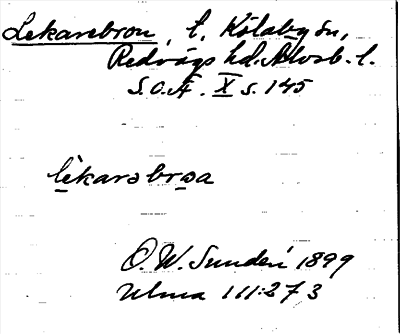 Lekarebron, t. Kölaby sn,
Redvägs hd. Älvsb. l.
S.O.Ä. X s. 145
lèkarəbroa
O. W. Sundén 1899
Ulma 111:273